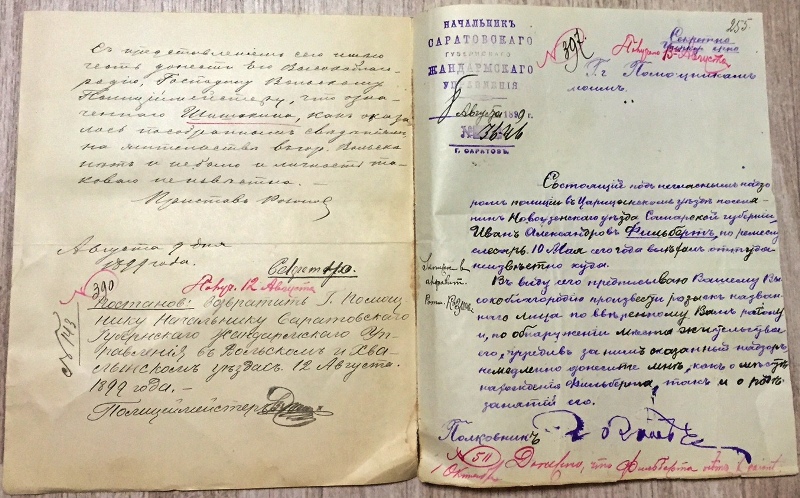 Съ представленіемъ сего имѣю
честь донести Его Высокоблаго-
родію, Господину Вольскому
Полицеймейстеру, что озна-
ченнаго Шишкина, какъ оказа
лось по собраннымъ свѣдѣніямъ
на жительствѣ въ гор. Вольскѣ
нѣтъ и не было и личность та-
ковая неизвѣстна. —
Приставъ
Августа 9 дня
1899 года.
Секретно.
№ 390
Получ. 12 Августа
№ 143
Постанов: возвратить Г. Помощ
нику Начальника Саратовскаго
Губернскаго Жандармскаго Уп-
равленія въ Вольскомъ и Хва-
лынскомъ уѣздахъ. 12 Августа
1899 года. —
Полицеймейстеръ
255.
НАЧАЛЬНИКЪ
САРАТОВСКАГО
ГУБЕРНСКАГО
ЖАНДАРМСКАГО
УПРАВЛЕНІЯ
8 Августа 1899 г.
№ 3626
Г. САРАТОВЪ.
№ 397
Секретно
Получено 13 Августа
Г.г. Помощникамъ
моимъ.
Состоящій подъ негласнымъ надзо
ромъ полиціи въ Царицынскомъ уѣздѣ поселя-
нинъ Новоузенскаго уѣзда Самарской губерніи
Иванъ Александровъ Фильбертъ, по ремеслу
слесарь, 10 Мая сего года выѣхалъ оттуда
неизвѣстно куда.
Въ виду сего предписываю Вашему Вы
сокоблагородію произвести розыскъ названна
го лица по ввѣренному Вамъ району
и, по обнаруженіи мѣста жительства
его, учредивъ за нимъ означенный надзоръ
немедленно донести мнѣ, какъ о мѣстѣ
нахожденія Фильберта, такъ и о родѣ
занятій его.
Полковникъ
№ 511
1 Октября
Донесено, что Фильберта нѣтъ въ